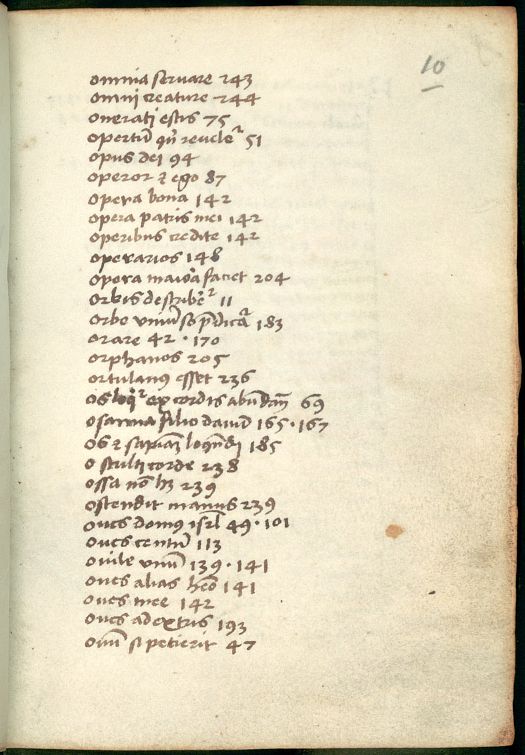 10
omnia servare 243
omni creature 244
onerati estis 75
opertū qn̄ revele^r 51
opus dei 94
operor ⁊ ego 87
opera bona 142
opera patris mei 142
operibus credite 142
operarios 148
opera maiora faciet 204
orbis describe^r 11
orbe univ̄so p̄dica^r 183
orare 42 · 170
orphanos 205
ortulanus esset 236
os loqi^r ex cordis abūdan̄ 69
osanna filio david 165 · 167
os ⁊ sapiam̄ loquēdi 185
o stulti corde 238
ossa nō hꝫ 239
ostendit manus 239
oves domus isrl̄ 49 · 101
oves centū 113
ovile unū 139 · 141
oves alias heō 141
oves mee 142
oves a dextris 193
ovū si petierit 47